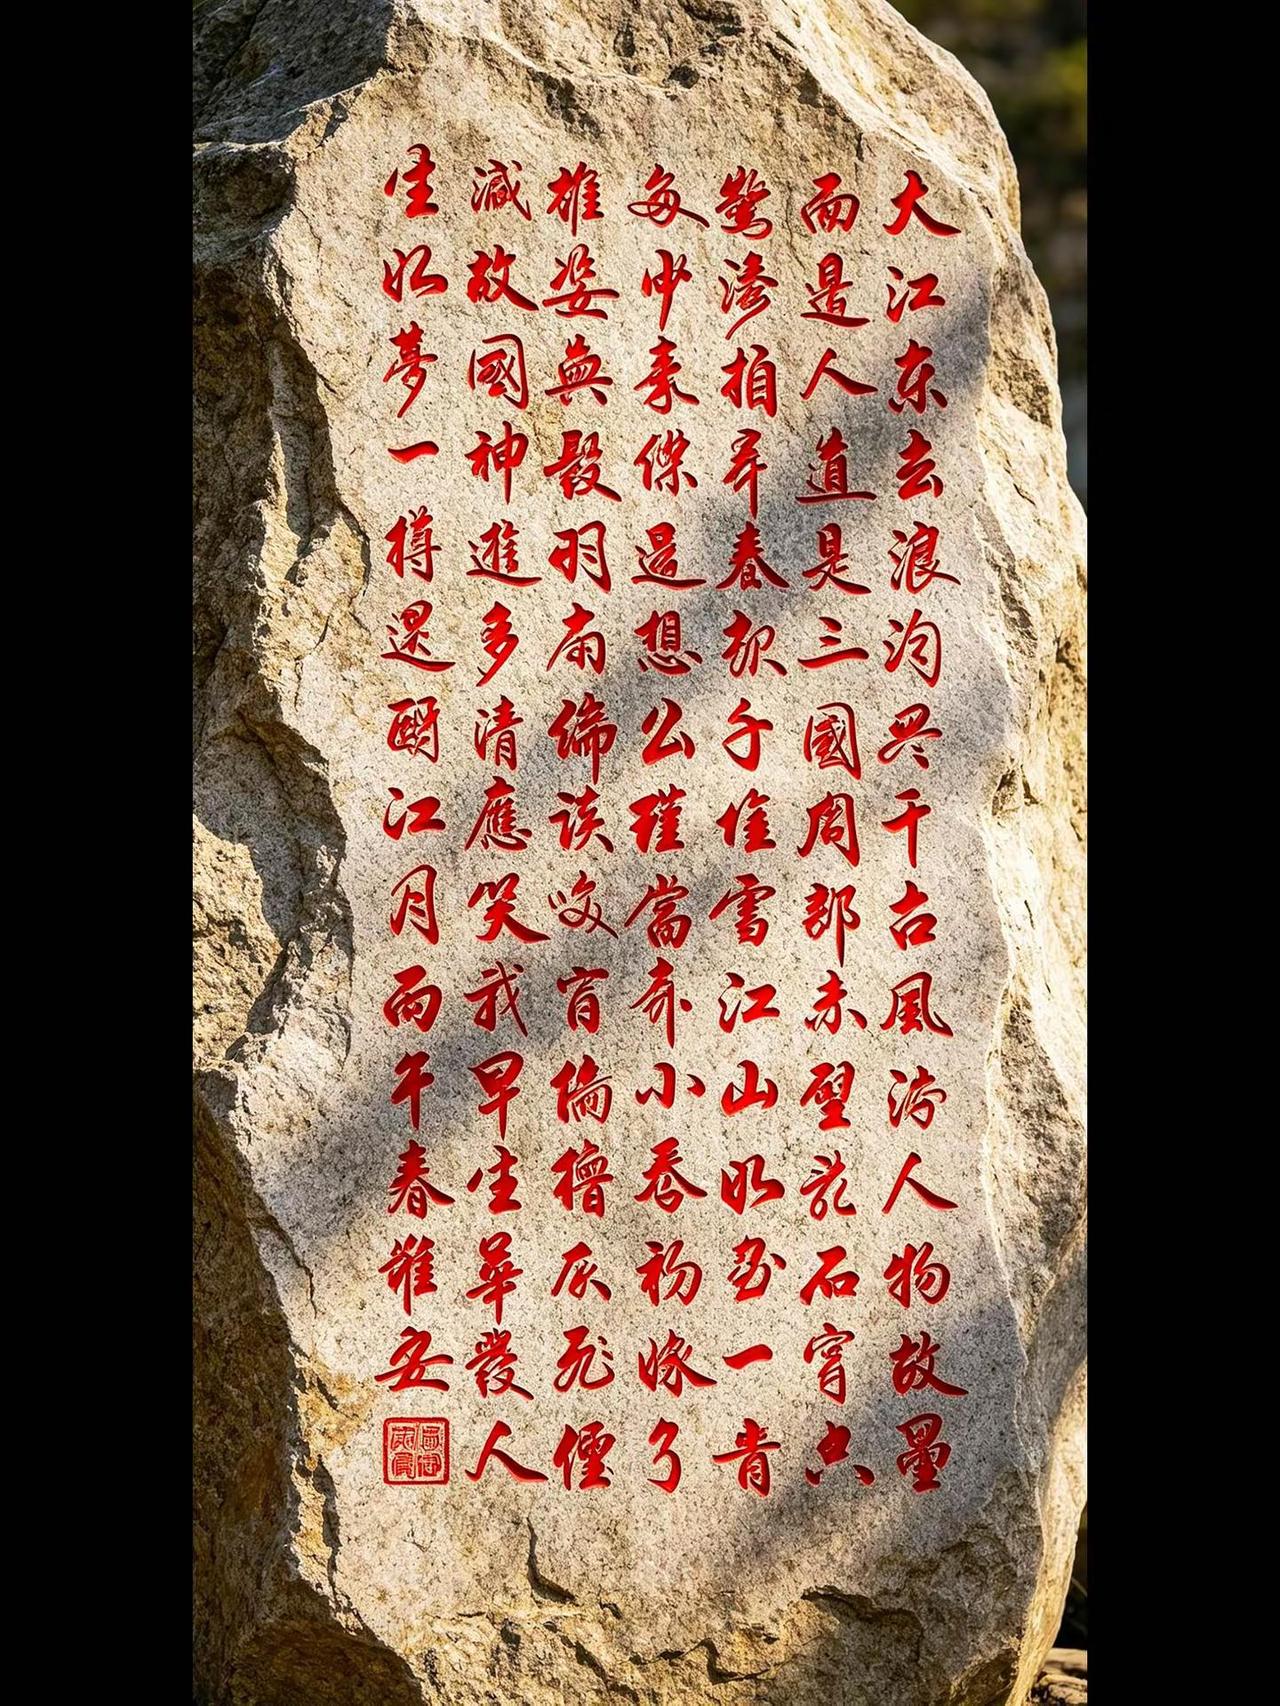 大江东去浪淘尽千古風流人物故壘
而邊人道是三國周郎赤壁乱石穿空
驚濤拍岸春起千堆雪江山如画一
多少豪傑遥想公瑾當年小喬初嫁了
雄姿無發羽扇綸談咲檣灰飛煙
減故國神遊多清應笑我早生華發人
生如夢一樽還酹江月丙午春淮安